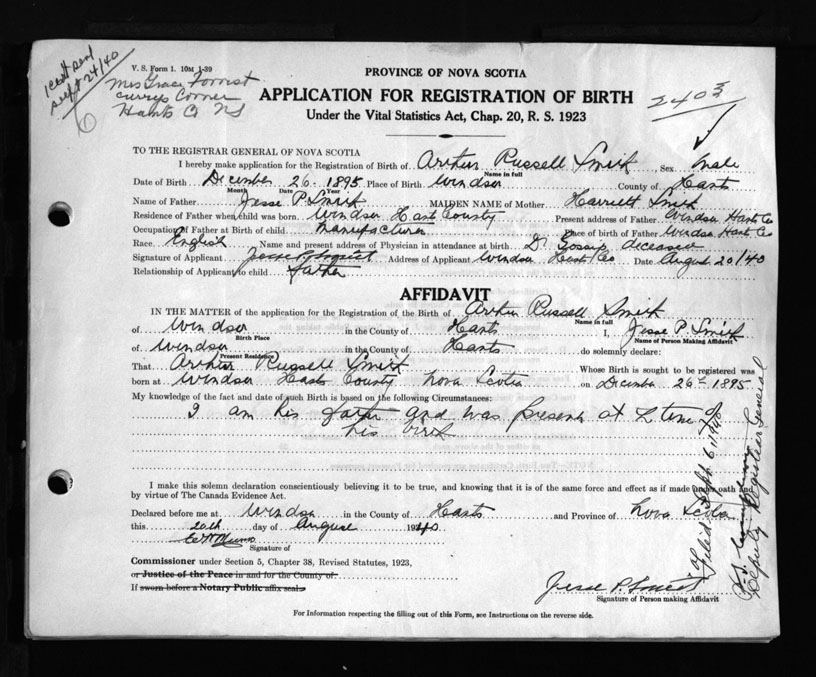 V. S. Form 1. 10M 1-39
Sept 24/40
Mrs Grace Forrest
Currys Corner
Hants Co NS
1
PROVINCE OF NOVA SCOTIA
APPLICATION FOR REGISTRATION OF BIRTH
Under the Vital Statistics Act, Chap. 20, R. S. 1923
2403
TO THE REGISTRAR GENERAL OF NOVA SCOTIA
I hereby make application for the Registration of Birth of Arthur Russell Smith, Sex male
Name in full
Date of Birth December 26 1895 Place of Birth Windsor County of Hants
Month Day Year
Name of Father Jesse P. Smith MAIDEN NAME of Mother Harriett Smith
Residence of Father when child was born Windsor Hants County Present address of Father Windsor Hants Co
Occupation of Father at Birth of child manufacturer Place of birth of Father Windsor Hants Co
Race English Name and present address of Physician in attendance at birth Dr Gossip deceased
Signature of Applicant Jesse P. Smith Address of Applicant Windsor Hants Co Date August 20/40
Relationship of Applicant to child father
AFFIDAVIT
IN THE MATTER of the application for the Registration of the Birth of Arthur Russell Smith
Name in full
of Windsor in the County of Hants I, Jesse P. Smith
Birth Place Name of Person Making Affidavit
of Windsor in the County of Hants do solemnly declare:
Present Residence
That Arthur Russell Smith Whose Birth is sought to be registered was
born at Windsor Hants County Nova Scotia on December 26th 1895
My knowledge of the fact and date of such Birth is based on the following Circumstances:
I am his father and was present at time of
his birth
I make this solemn declaration conscientiously believing it to be true, and knowing that it is of the same force and effect as if made under oath and
by virtue of The Canada Evidence Act.
Declared before me at Windsor in the County of Hants and Province of Nova Scotia
this 20th day of August 1940
Signature of
Commissioner under Section 5, Chapter 38, Revised Statutes, 1923,
or Justice of the Peace in and for the County of
If sworn before a Notary Public affix seal.
Jesse P. Smith
Signature of Person making Affidavit
For Information respecting the filling out of this Form, see Instructions on the reverse side.
Filed Sept. 6, 1940
Deputy Registrar General